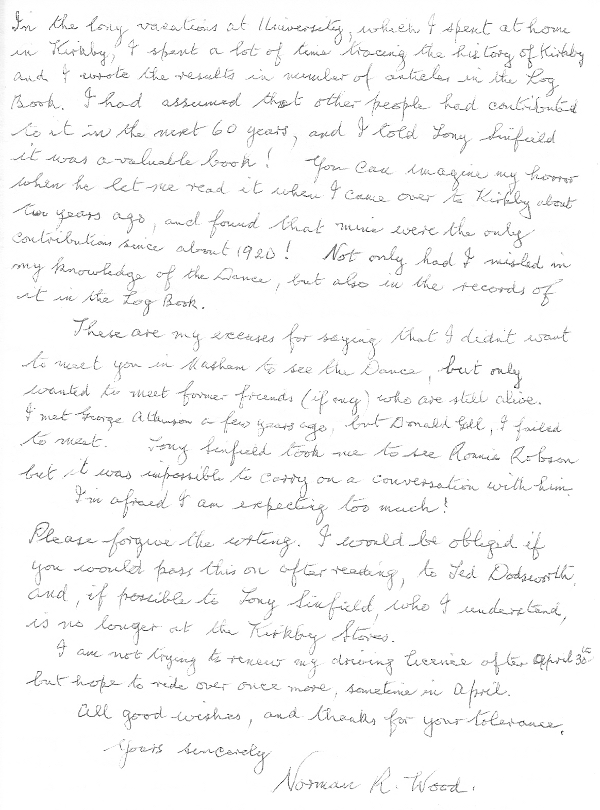 In the long vacations at University, which I spent at home
in Kirkby, I spent a lot of time tracing the history of Kirkby
and I wrote the results in number of articles in the Log
Book. I had assumed that other people had contributed
to it in the next 60 years, and I told Tony Sinfield
it was a valuable book! You can imagine my horror
when he let me read it when I came over to Kirkby about
two years ago, and found that mine were the only
contributions since about 1920! Not only had I misled in
my knowledge of the Dance, but also in the records of
it in the Log Book.
These are my excuses for saying that I didn't want
to meet you in Masham to see the Dance, but only
wanted to meet former friends (if any) who are still alive.
I met George Atkinson a few years ago, but Donald Gill, I failed
to meet. Tony Sinfield took me to see Ronnie Robson
but it was impossible to carry on a conversation with him.
I'm afraid I am expecting too much!
Please forgive the writing. I would be obliged if
you would pass this on after reading, to Ted Dodsworth,
and, if possible to Tony Sinfield, who I understand,
is no longer at the Kirkby Stores.
I am not trying to renew my driving licence after April 30th
but hope to ride over once more, sometime in April.
All good wishes, and thanks for your tolerance.
Yours sincerely
Norman R. Wood.